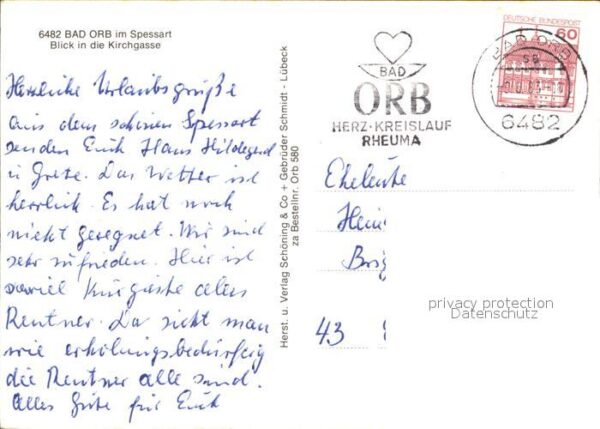 6482 BAD ORB im Spessart
Blick in die Kirchgasse
Herzliche Urlaubsgrüße
aus dem schönen Spessart
senden Euch Hans Hildegard
u Grete. Das Wetter ist
herrlich. Es hat noch
nicht geregnet. Wir sind
sehr zufrieden. Hier ist
soviel Kurgäste alles
Rentner. Da sieht man
wie erholungsbedürftig
die Rentner alle sind.
Alles Gute für Euch
Herst. u. Verlag Schöning & Co + Gebrüder Schmidt - Lübeck
zu Bestellnr. Orb 580
BAD
ORB
HERZ-KREISLAUF
RHEUMA
DEUTSCHE BUNDESPOST
60
BAD ORB
6482
Eheleute
Hein
43
privacy protection
Datenschutz